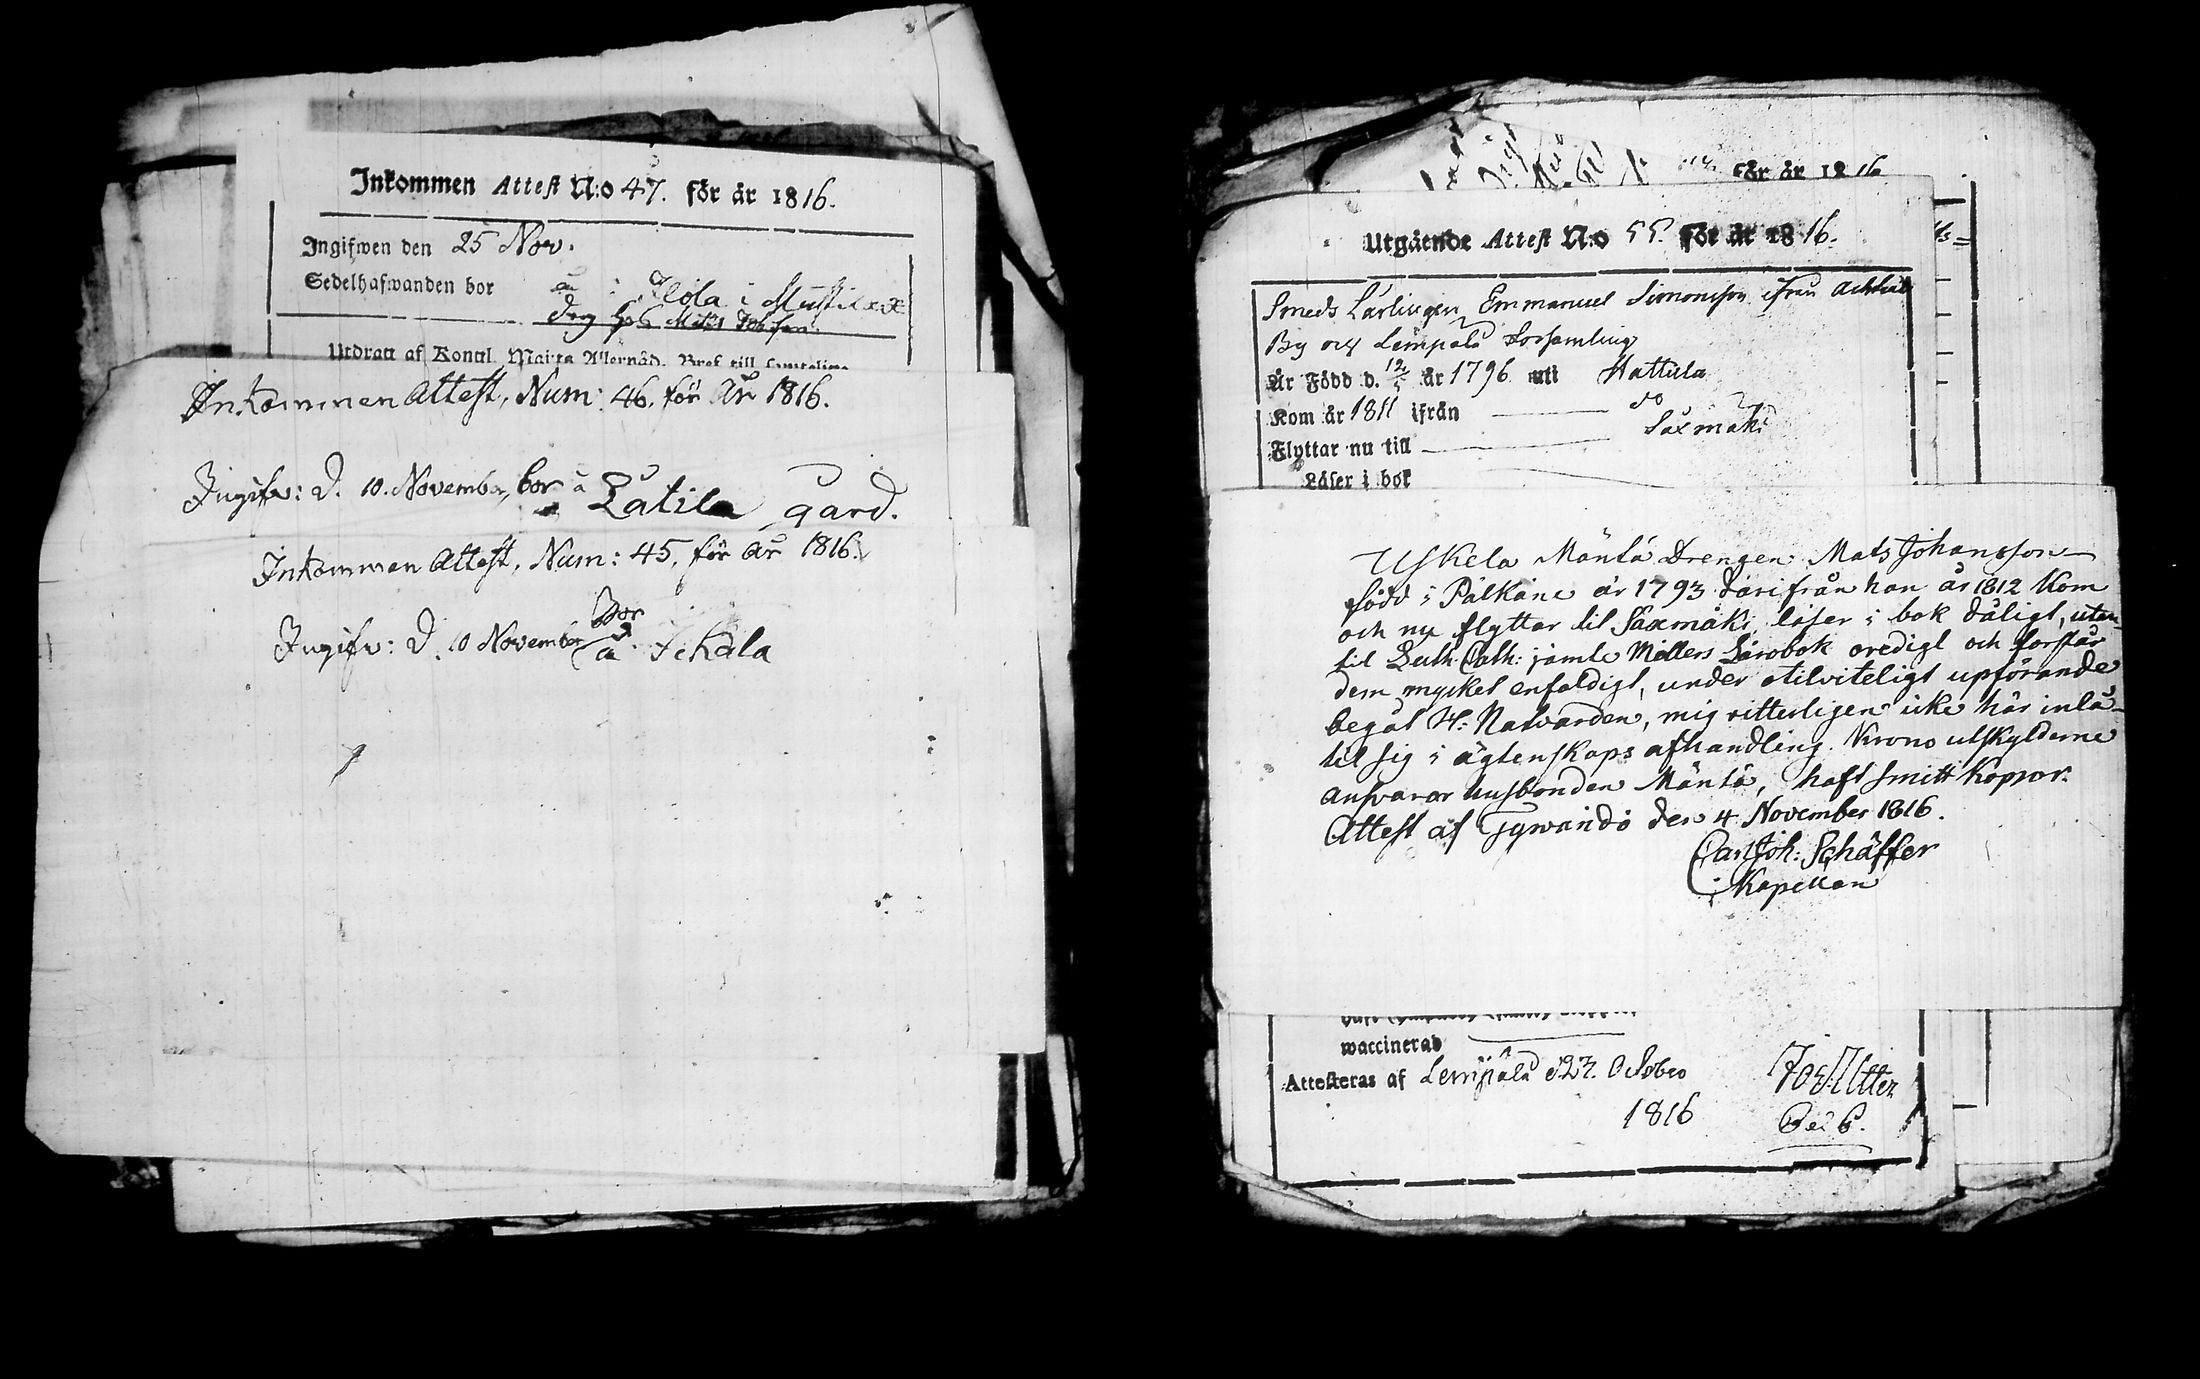 Inkommen Attest N:o 47. för år 1816.
Ingifwen den 25 Nov.
Sedelhafwanden bor
Dr hos Mats
Utdratt af Kongl. Maj:ts Allernåd. Bref till samtelige
Inkommen Attest, Num: 46. för År 1816.
Ingifv: D. 10. November, bor å Latila gård.
Inkommen Attest, Num: 45, för År 1816.
Bor
Ingifv: D. 10 November å Ichala
för år 1816
Utgående Attest N:o 55. för år 1816.
Smeds Lärlingen Emmanuel Simonsson ifrån
By och Lempälä Församling
Är Född d. 12/5 år 1796 uti Hattula
Kom år 1811 ifrån do
Flyttar nu till Säxmäki
Läser i bok
Uskela Mäntä Drengen Mats Johansson
född i Pälkäne år 1793 därifrån han år 1812 kom
och nu flyttar til Säxmäki läser i bok dåligt, utan-
til Luth. Cath: jämte Möllers Lärobok oredigt och förstår
dem mycket enfaldigt, under otilviteligt upförande
begåt H: Natvarden, mig vitterligen icke här inlå-
tit sig i ägtenskaps afhandling. Krono utskylderne
ansvarar husbonden Mäntä, haft smitt koppor.
Attest af Tyrvändö den 4 November 1816.
Carl Joh: Schäffer
Kapellan
waccinerad
Attesteras af Lempälä d. 27. Octobr
1816